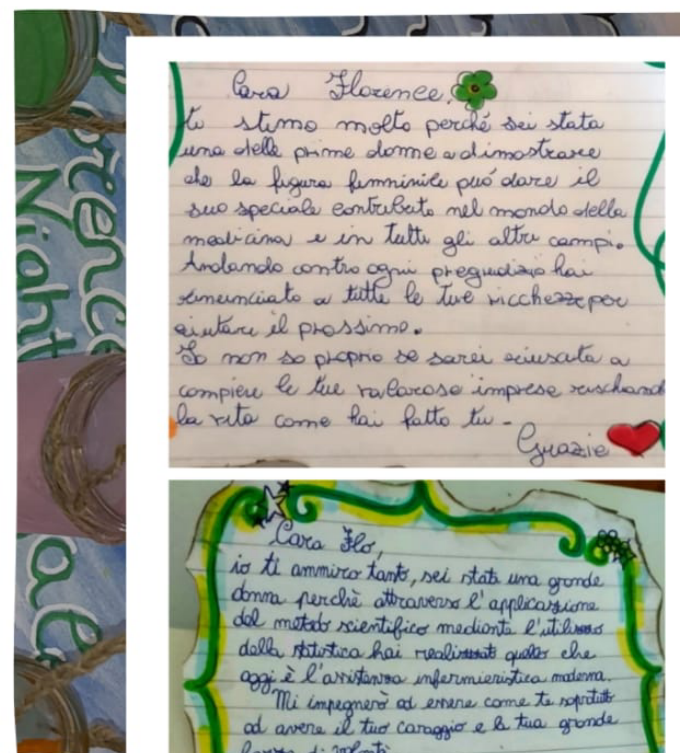 Florence
Night
ale
Cara Florence,
ti stimo molto perché sei stata
una delle prime donne a dimostrare
che la figura femminile può dare il
suo speciale contributo nel mondo della
medicina e in tutti gli altri campi.
Andando contro ogni pregiudizio hai
rinunciato a tutte le tue ricchezze per
aiutare il prossimo.
Io non so proprio se sarei riuscita a
compiere le tue valorose imprese rischiand
la vita come hai fatto tu.
Grazie
Cara Flo,
io ti ammiro tanto, sei stata una grande
donna perchè attraverso l'applicazione
del metodo scientifico mediante l'utilizzo
della statistica hai realizzato quello che
oggi è l'assistenza infermieristica moderna.
Mi impegnerò ad essere come te soprattutto
ad avere il tuo coraggio e la tua grande
forza di volontà